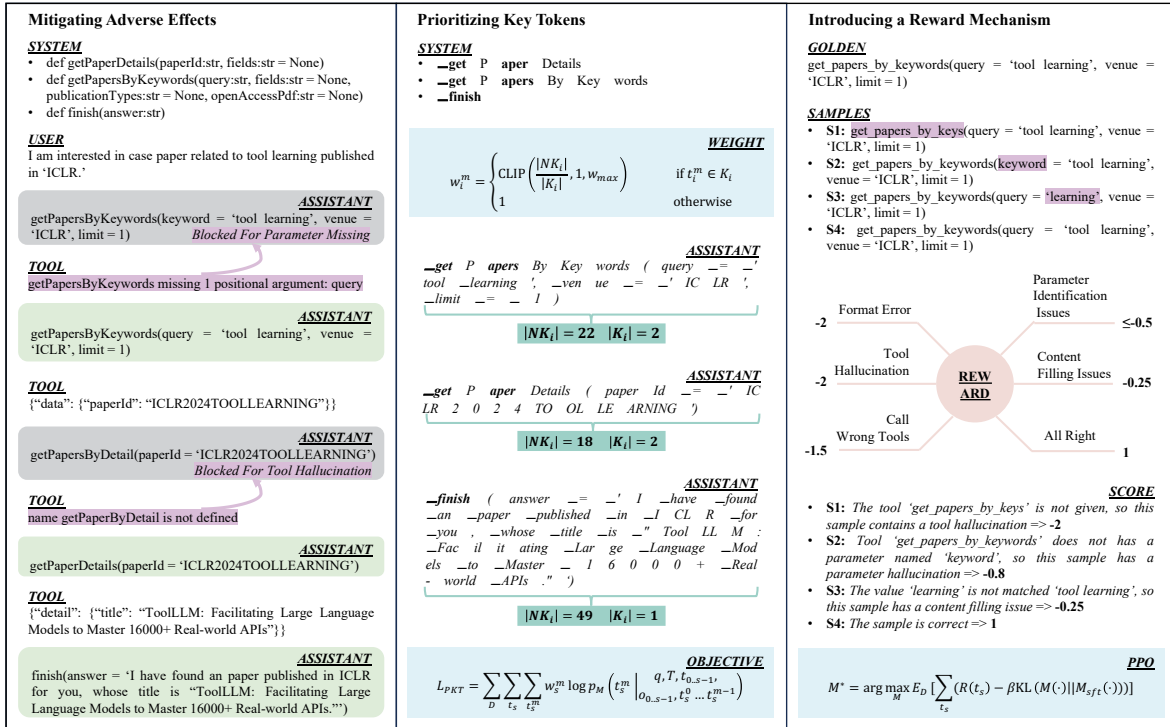 Mitigating Adverse Effects
SYSTEM
• def getPaperDetails(paperId:str, fields:str = None)
• def getPapersByKeywords(query:str, fields:str = None,
publicationTypes:str = None, openAccessPdf:str = None)
• def finish(answer:str)
USER
I am interested in case paper related to tool learning published
in ‘ICLR.’
ASSISTANT
getPapersByKeywords(keyword = ‘tool learning’, venue =
‘ICLR’, limit = 1) Blocked For Parameter Missing
TOOL
getPapersByKeywords missing 1 positional argument: query
ASSISTANT
getPapersByKeywords(query = ‘tool learning’, venue =
‘ICLR’, limit = 1)
TOOL
{“data”: {“paperId”: “ICLR2024TOOLLEARNING”}}
ASSISTANT
getPapersByDetail(paperId = ‘ICLR2024TOOLLEARNING’)
Blocked For Tool Hallucination
TOOL
name getPaperByDetail is not defined
ASSISTANT
getPaperDetails(paperId = ‘ICLR2024TOOLLEARNING’)
TOOL
{“detail”: {“title”: “ToolLLM: Facilitating Large Language
Models to Master 16000+ Real-world APIs”}}
ASSISTANT
finish(answer = ‘I have found an paper published in ICLR
for you, whose title is “ToolLLM: Facilitating Large
Language Models to Master 16000+ Real-world APIs.”’)
Prioritizing Key Tokens
SYSTEM
• _get P aper Details
• _get P apers By Key words
• _finish
WEIGHT
w_i^m = { CLIP(|NK_i| / |K_i|, 1, w_max) if t_i^m ∈ K_i
1 otherwise
ASSISTANT
_get P apers By Key words ( query _= _'
tool _learning ', _ven ue _= _' IC LR ',
_limit _= _ 1 )
|NK_i| = 22 |K_i| = 2
ASSISTANT
_get P aper Details ( paper Id _= _' IC
LR 2 0 2 4 TO OL LE ARNING ')
|NK_i| = 18 |K_i| = 2
ASSISTANT
_finish ( answer _= _' I _have _found
_an _paper _published _in _I CL R _for
_you , _whose _title _is _" Tool LL M :
_Fac il it ating _Lar ge _Language _Mod
els _to _Master _ 1 6 0 0 0 + _Real
- world _APIs ." ')
|NK_i| = 49 |K_i| = 1
OBJECTIVE
L_PKT = ∑_D ∑_{t_s} ∑_{t_s^m} w_s^m log p_M (t_s^m | q, T, t_{0..s−1}, o_{0..s−1}, t_s^0 … t_s^{m−1})
Introducing a Reward Mechanism
GOLDEN
get_papers_by_keywords(query = ‘tool learning’, venue =
‘ICLR’, limit = 1)
SAMPLES
• S1: get_papers_by_keys(query = ‘tool learning’, venue =
‘ICLR’, limit = 1)
• S2: get_papers_by_keywords(keyword = ‘tool learning’,
venue = ‘ICLR’, limit = 1)
• S3: get_papers_by_keywords(query = ‘learning’, venue =
‘ICLR’, limit = 1)
• S4: get_papers_by_keywords(query = ‘tool learning’,
venue = ‘ICLR’, limit = 1)
Format Error
-2
Tool
Hallucination
-2
Call
Wrong Tools
-1.5
REW
ARD
Parameter
Identification
Issues
≤-0.5
Content
Filling Issues
-0.25
All Right
1
SCORE
• S1: The tool ‘get_papers_by_keys’ is not given, so this
sample contains a tool hallucination => -2
• S2: Tool ‘get_papers_by_keywords’ does not has a
parameter named ‘keyword’, so this sample has a
parameter hallucination => -0.8
• S3: The value ‘learning’ is not matched ‘tool learning’, so
this sample has a content filling issue => -0.25
• S4: The sample is correct => 1
PPO
M* = arg max_M E_D [∑_{t_s} (R(t_s) − βKL (M(·)||M_sft(·)))]